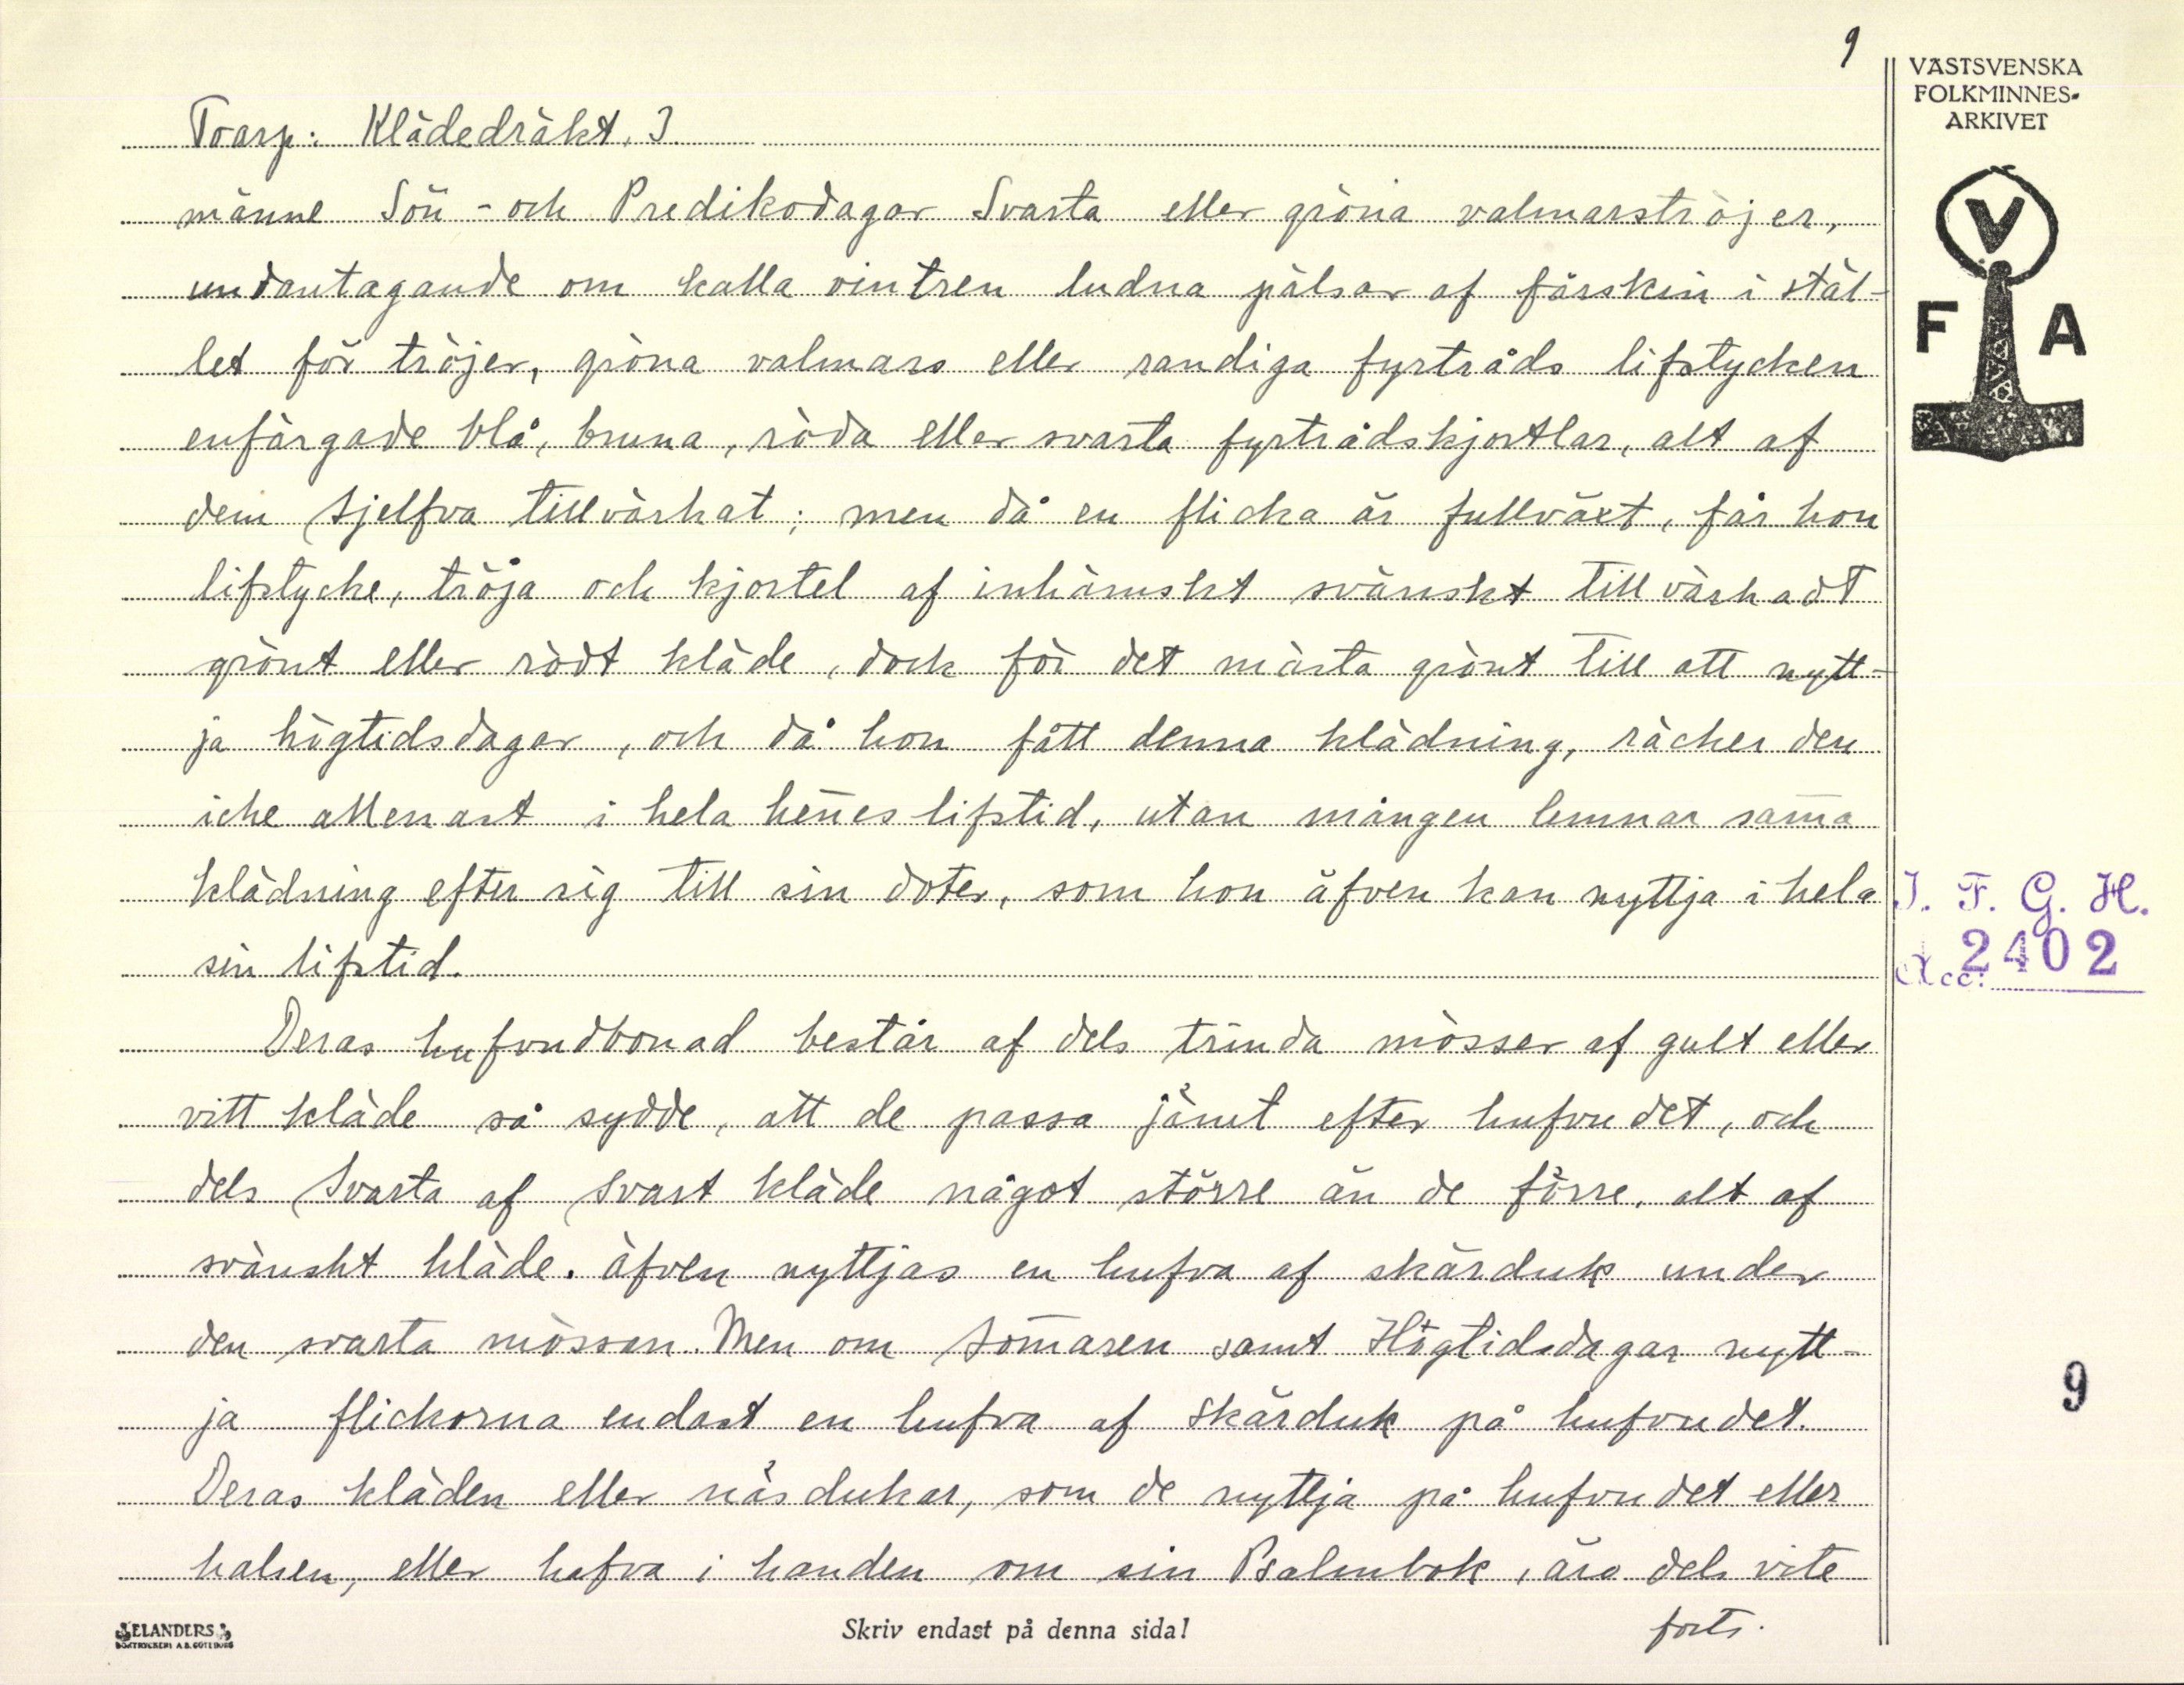 9
VÄSTSVENSKA
FOLKMINNES-
ARKIVET
V
F A
Toarp: Klädedräkt. 3.
männe Sön- och Predikodagar Svarta eller gröna valmarströjer,
undantagande om kalla vintren ludna pälsar af fårskin i stäl-
let för tröjer, gröna valmars eller randiga fyrtråds lifstycken
enfärgade blå, bruna, röda eller svarta fyrtrådskjortlar, alt af
dem sjelfva tillvärkat; men då en flicka är fullväxt, får hon
lifstycke, tröja och kjortel af inhämskt svänskt tillvärkadt
grönt eller rödt kläde, dock för det mästa grönt till att nytt-
ja högtidsdagar, och då hon fått denna klädning, räcker den
icke allenast i hela hen̄es lifstid, utan mången lemnar sam̄a
klädning efter sig till sin doter, som hon äfven kan nyttja i hela
sin lifstid.
J. F. G. H.
Acc: 2402
Deras hufvudbonad består af dels trinda mösser af gult eller
vitt kläde så sydde, att de passa jämt efter hufvudet, och
dels Svarta af svart kläde något större än de förre, alt af
svänskt kläde. äfven nyttjas en hufva af skärduk under
den svarta mössan. Men om som̄aren samt Högtidsdagar nytt-
ja flickorna endast en hufva af skärduk på hufvudet.
9
Deras kläden eller näsdukar, som de nyttja på hufvudet eller
halsen, eller hafva i handen om sin Psalmbok, äro dels vite
forts.
ELANDERS
BOKTRYCKERI A.B. GÖTEBORG
Skriv endast på denna sida!